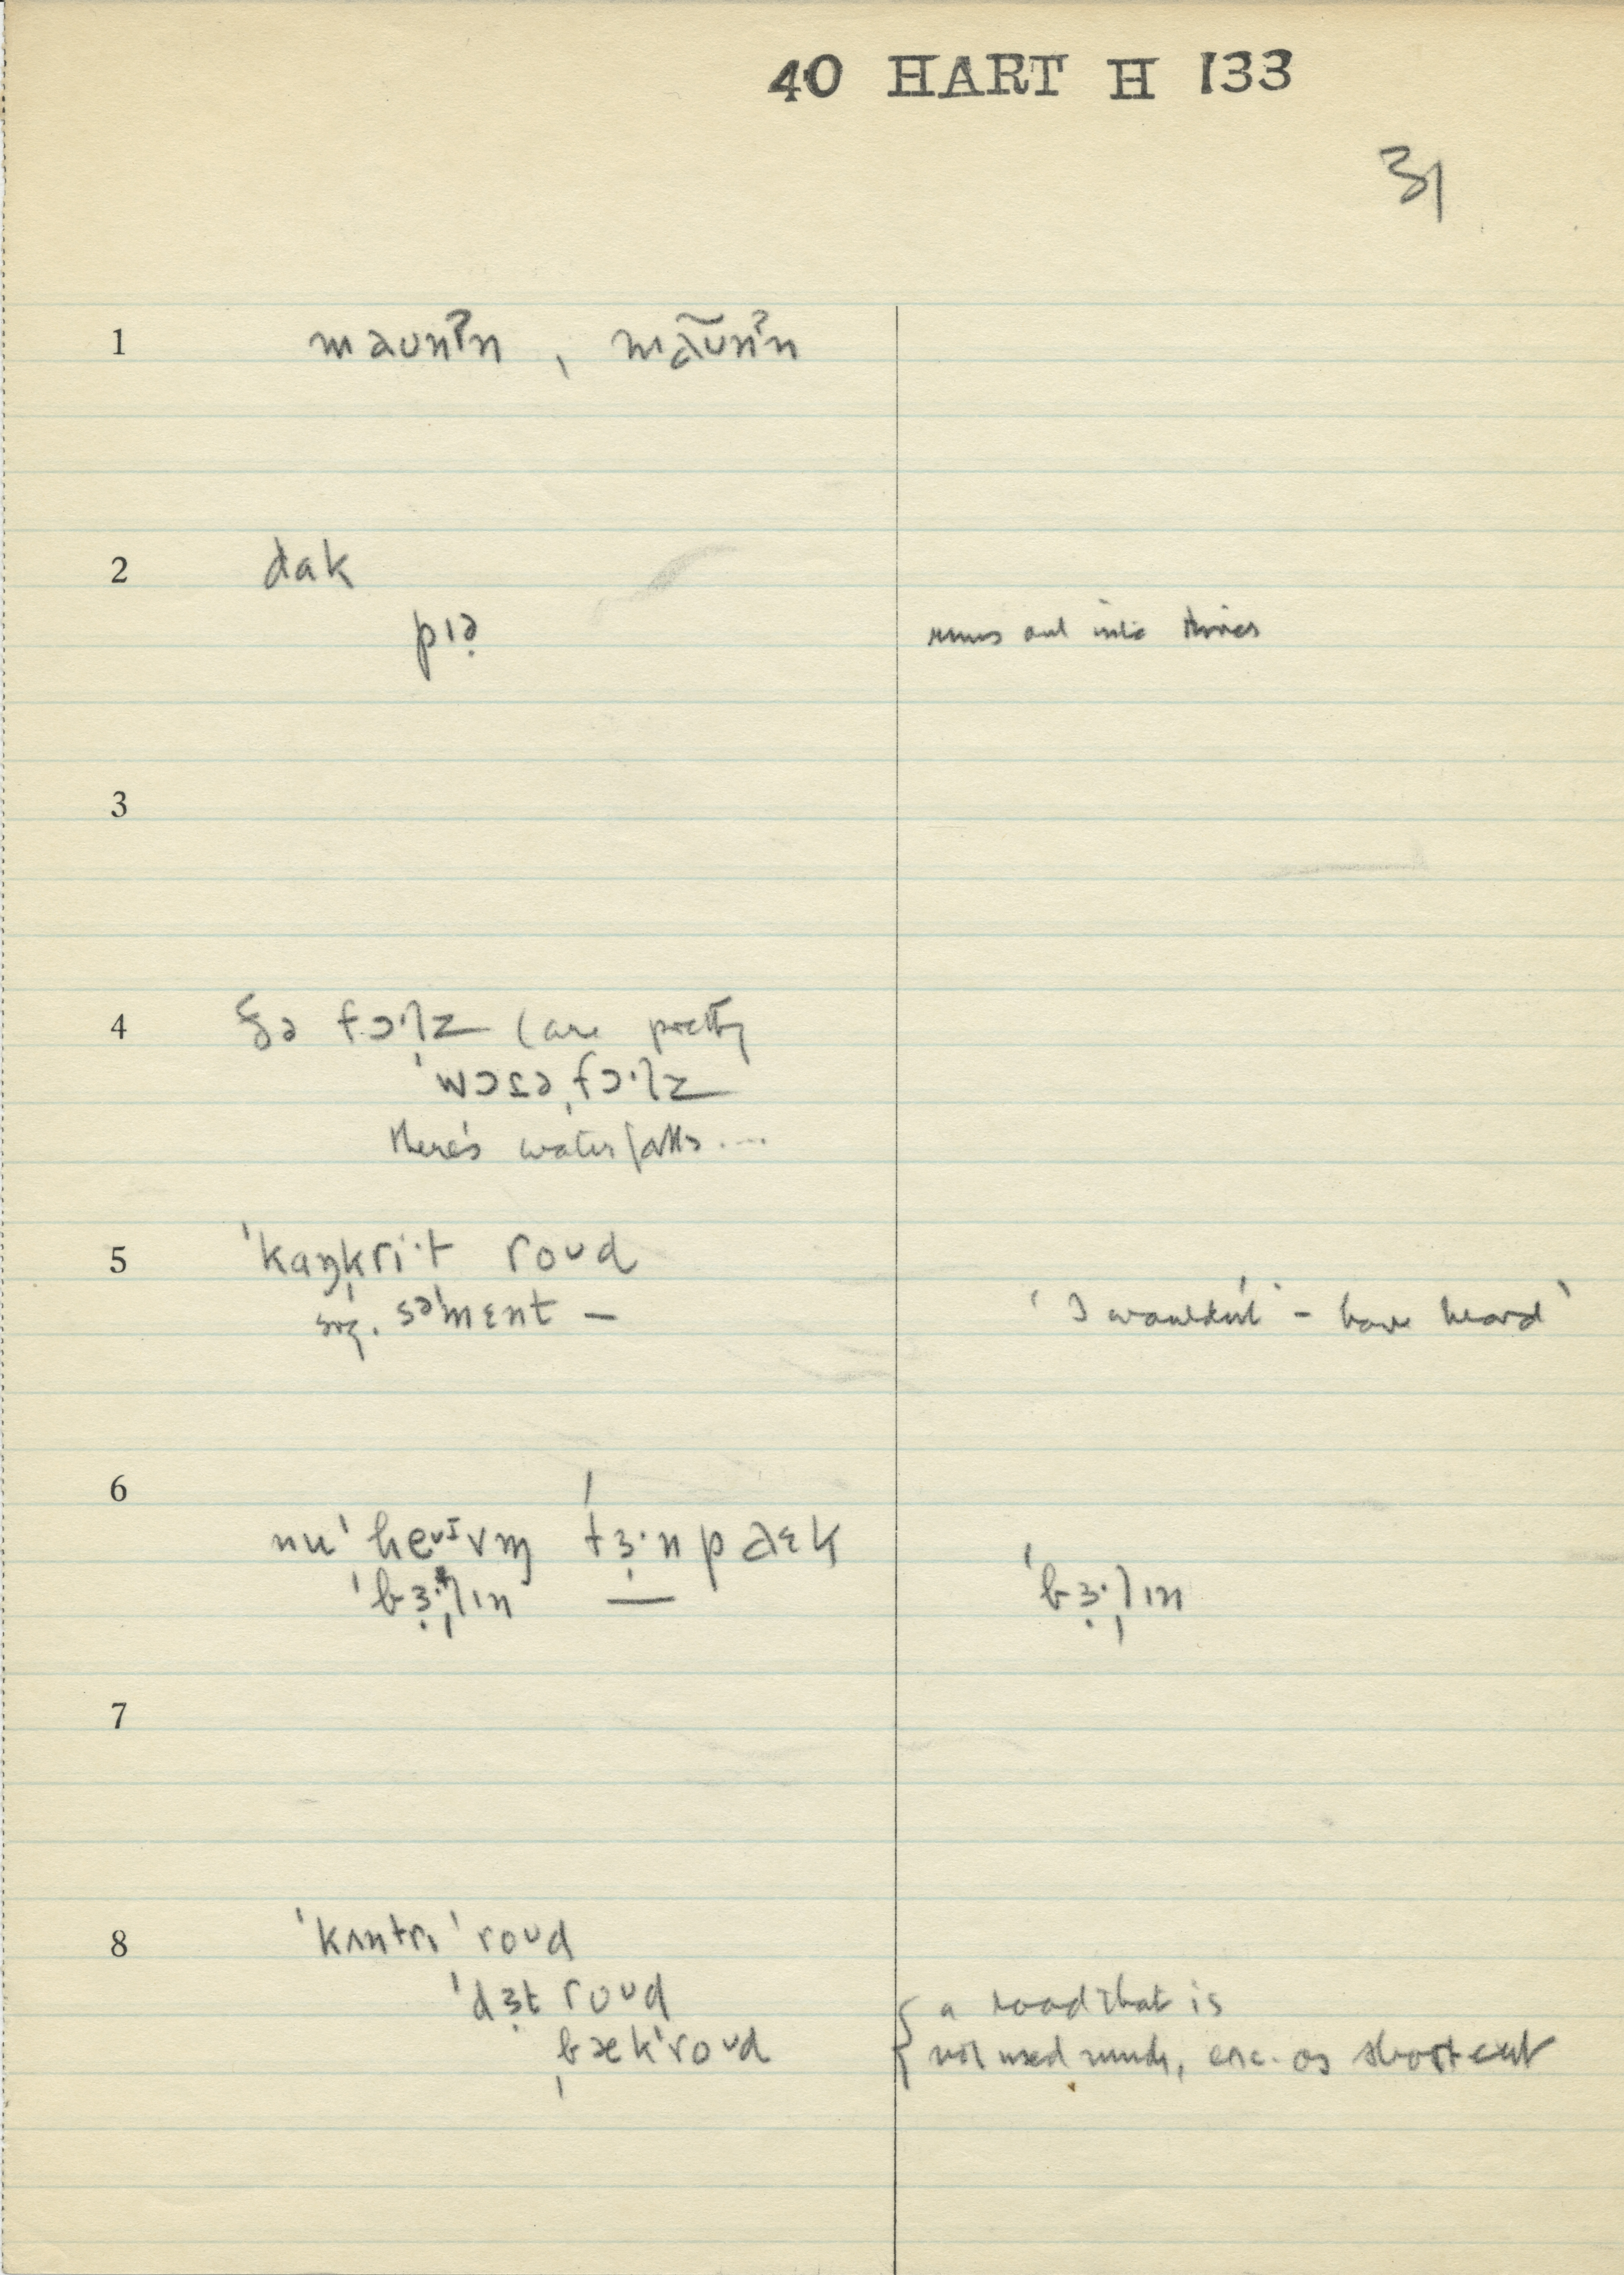 40 HART H 133
31
1 maʊnʔn̩ , mãʊ̃nʔn̩
2 dak
pɪə̣ runs out into river
3
4 ðə fɔ·lz (are pretty
ˈwɔɾəˌfɔ·lz
there's waterfalls....
5 ˈkaŋˌkri·t roʊd
sug. səˈmɛnt — ' I wouldn't – have heard '
6
nuˈhevm̩ ˈtɜ̣·npaɛk
ˈbɜ̣·lɪn — ˈbɜ̣·lɪn
7
8 ˈkʌntrɪ ˈroʊd
ˈdɜ̣t roʊd { a road that is
ˌbækˈroʊd not used much, as short cut